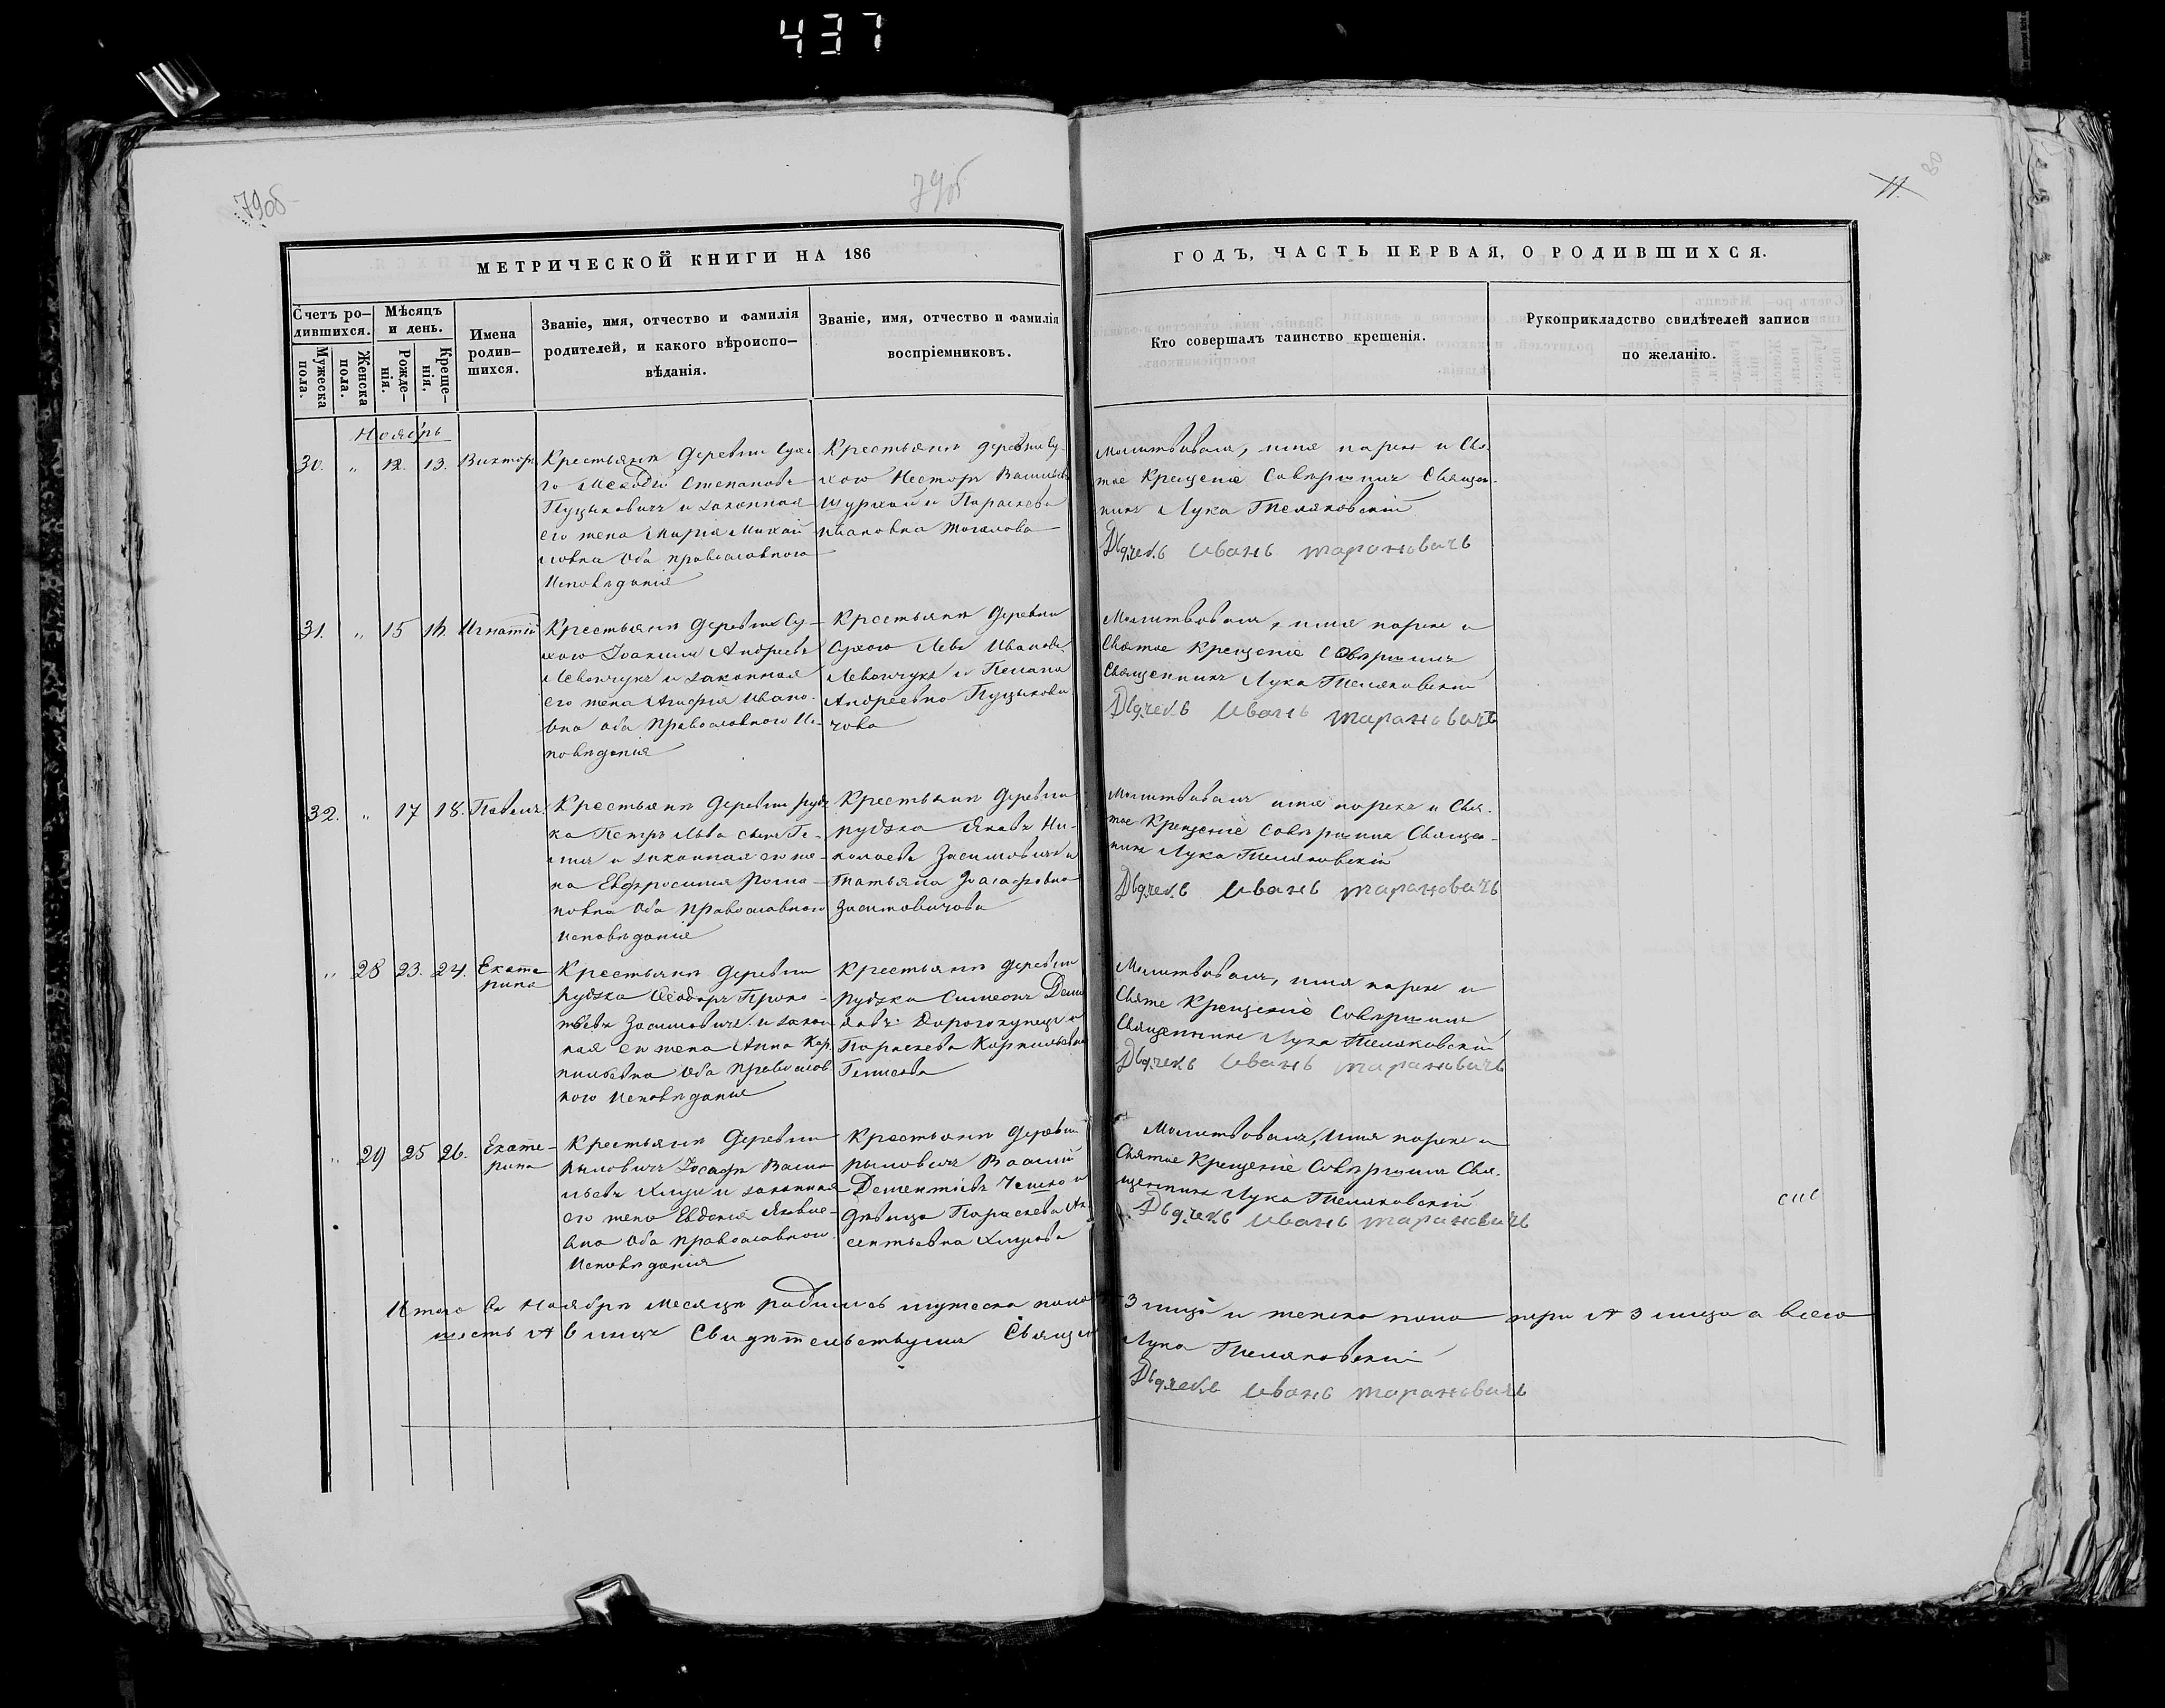 437
79об
79об
11.
80
МЕТРИЧЕСКОЙ КНИГИ НА 186
ГОДЪ, ЧАСТЬ ПЕРВАЯ, О РОДИВШИХСЯ.
Счетъ ро-
дившихся.
Мужеска пола.
Женска пола.
Мѣсяцъ
и день.
Рожде-
нія.
Креще-
нія.
Имена
родив-
шихся.
Званіе, имя, отчество и фамилія
родителей, и какого вѣроиспо-
вѣданія.
Званіе, имя, отчество и фамилія
воспріемниковъ.
Кто совершалъ таинство крещенія.
Рукоприкладство свидѣтелей записи
по желанію.
Ноябрь
30. „ 12. 13. Викторъ
Крестьянинъ деревни Сухо
го Меѳодій Степановъ
Пуцыковичъ и законная
его жена Марія Михай
ловна оба православнаго
Исповѣданія
Крестьянинъ деревни Су-
хого Несторъ Васильевъ
и Параскева
Ивановна
Молитвовалъ, имя нарекъ и Свя-
тое Крещеніе Совѣршилъ Священ-
никъ Лука Теляковскій
Дьячекъ Иванъ Тарановичъ
31. „ 15 16. Игнатій
Крестьянинъ деревни Су-
хого Іоакимъ Андреевъ
Левончукъ и законная
его жена Агафія Ивано-
вна оба Православного Ис-
повѣданія
Крестьянинъ Деревни
Сухого Левъ Ивановъ
Левончукъ и
Андреевна Пуцыкови
чова
Молитвовалъ, имя нарекъ и
Святое Крещеніе Совѣршилъ
Священникъ Лука Теляковскій
Дьячекъ Иванъ Тарановичъ
32. „ 17 18. Павелъ
Крестьянинъ деревни Рудз
ка Петръ Льва сынъ
и законная его же-
на Евфросинія Рома-
новна оба православного
Исповѣданія
Крестьянинъ Деревни
Рудзка Яковъ Ни-
колаевъ Засимовичъ и
Татьяна Іоасафовна
Засимовичова
Молитвовалъ имя нарекъ и Свя-
тое Крещеніе Совѣршилъ Священ-
никъ Лука Теляковскій
Дьячекъ Иванъ Тарановичъ
„ 28 23. 24. Екате
рина
Крестьянинъ деревни
Рудзка Ѳеодоръ Проко-
пьевъ Засимовичъ и закон
ная его жена Анна Кор
нильевна оба православ
ного Исповѣданія
Крестьянинъ деревни
Рудзка Симеонъ
Дорогокупецъ и
Параскева Корнильевна
Молитвовалъ, имя нарекъ и
Святе Крещеніе Совѣршилъ
Священникъ Лука Теляковскій
Дьячекъ Иванъ Тарановичъ
„ 29 25 26. Екате-
рина
Крестьянинъ Деревни
Рыловичъ Іосафъ Васи-
льевъ и законная
его жена Евдокія Яковле-
вна оба православного
Исповѣданія
Крестьянинъ деревни
Рыловичъ Василій
Дементіевъ и
дѣвица Параскева Ав
сентьевна
Молитвовалъ, имя нарекъ и
Святое Крещеніе Совѣршилъ Свя-
щенникъ Лука Теляковскій
Дьячекъ Иванъ Тарановичъ
Итого въ Ноябрѣ месяцѣ родилось мужеска пола 3 лица и женска пола три 3 лица а всего
шесть 6 лицъ Свидѣтельствуемъ Священ
Лука Теляковскій
Дьячекъ Иванъ Тарановичъ